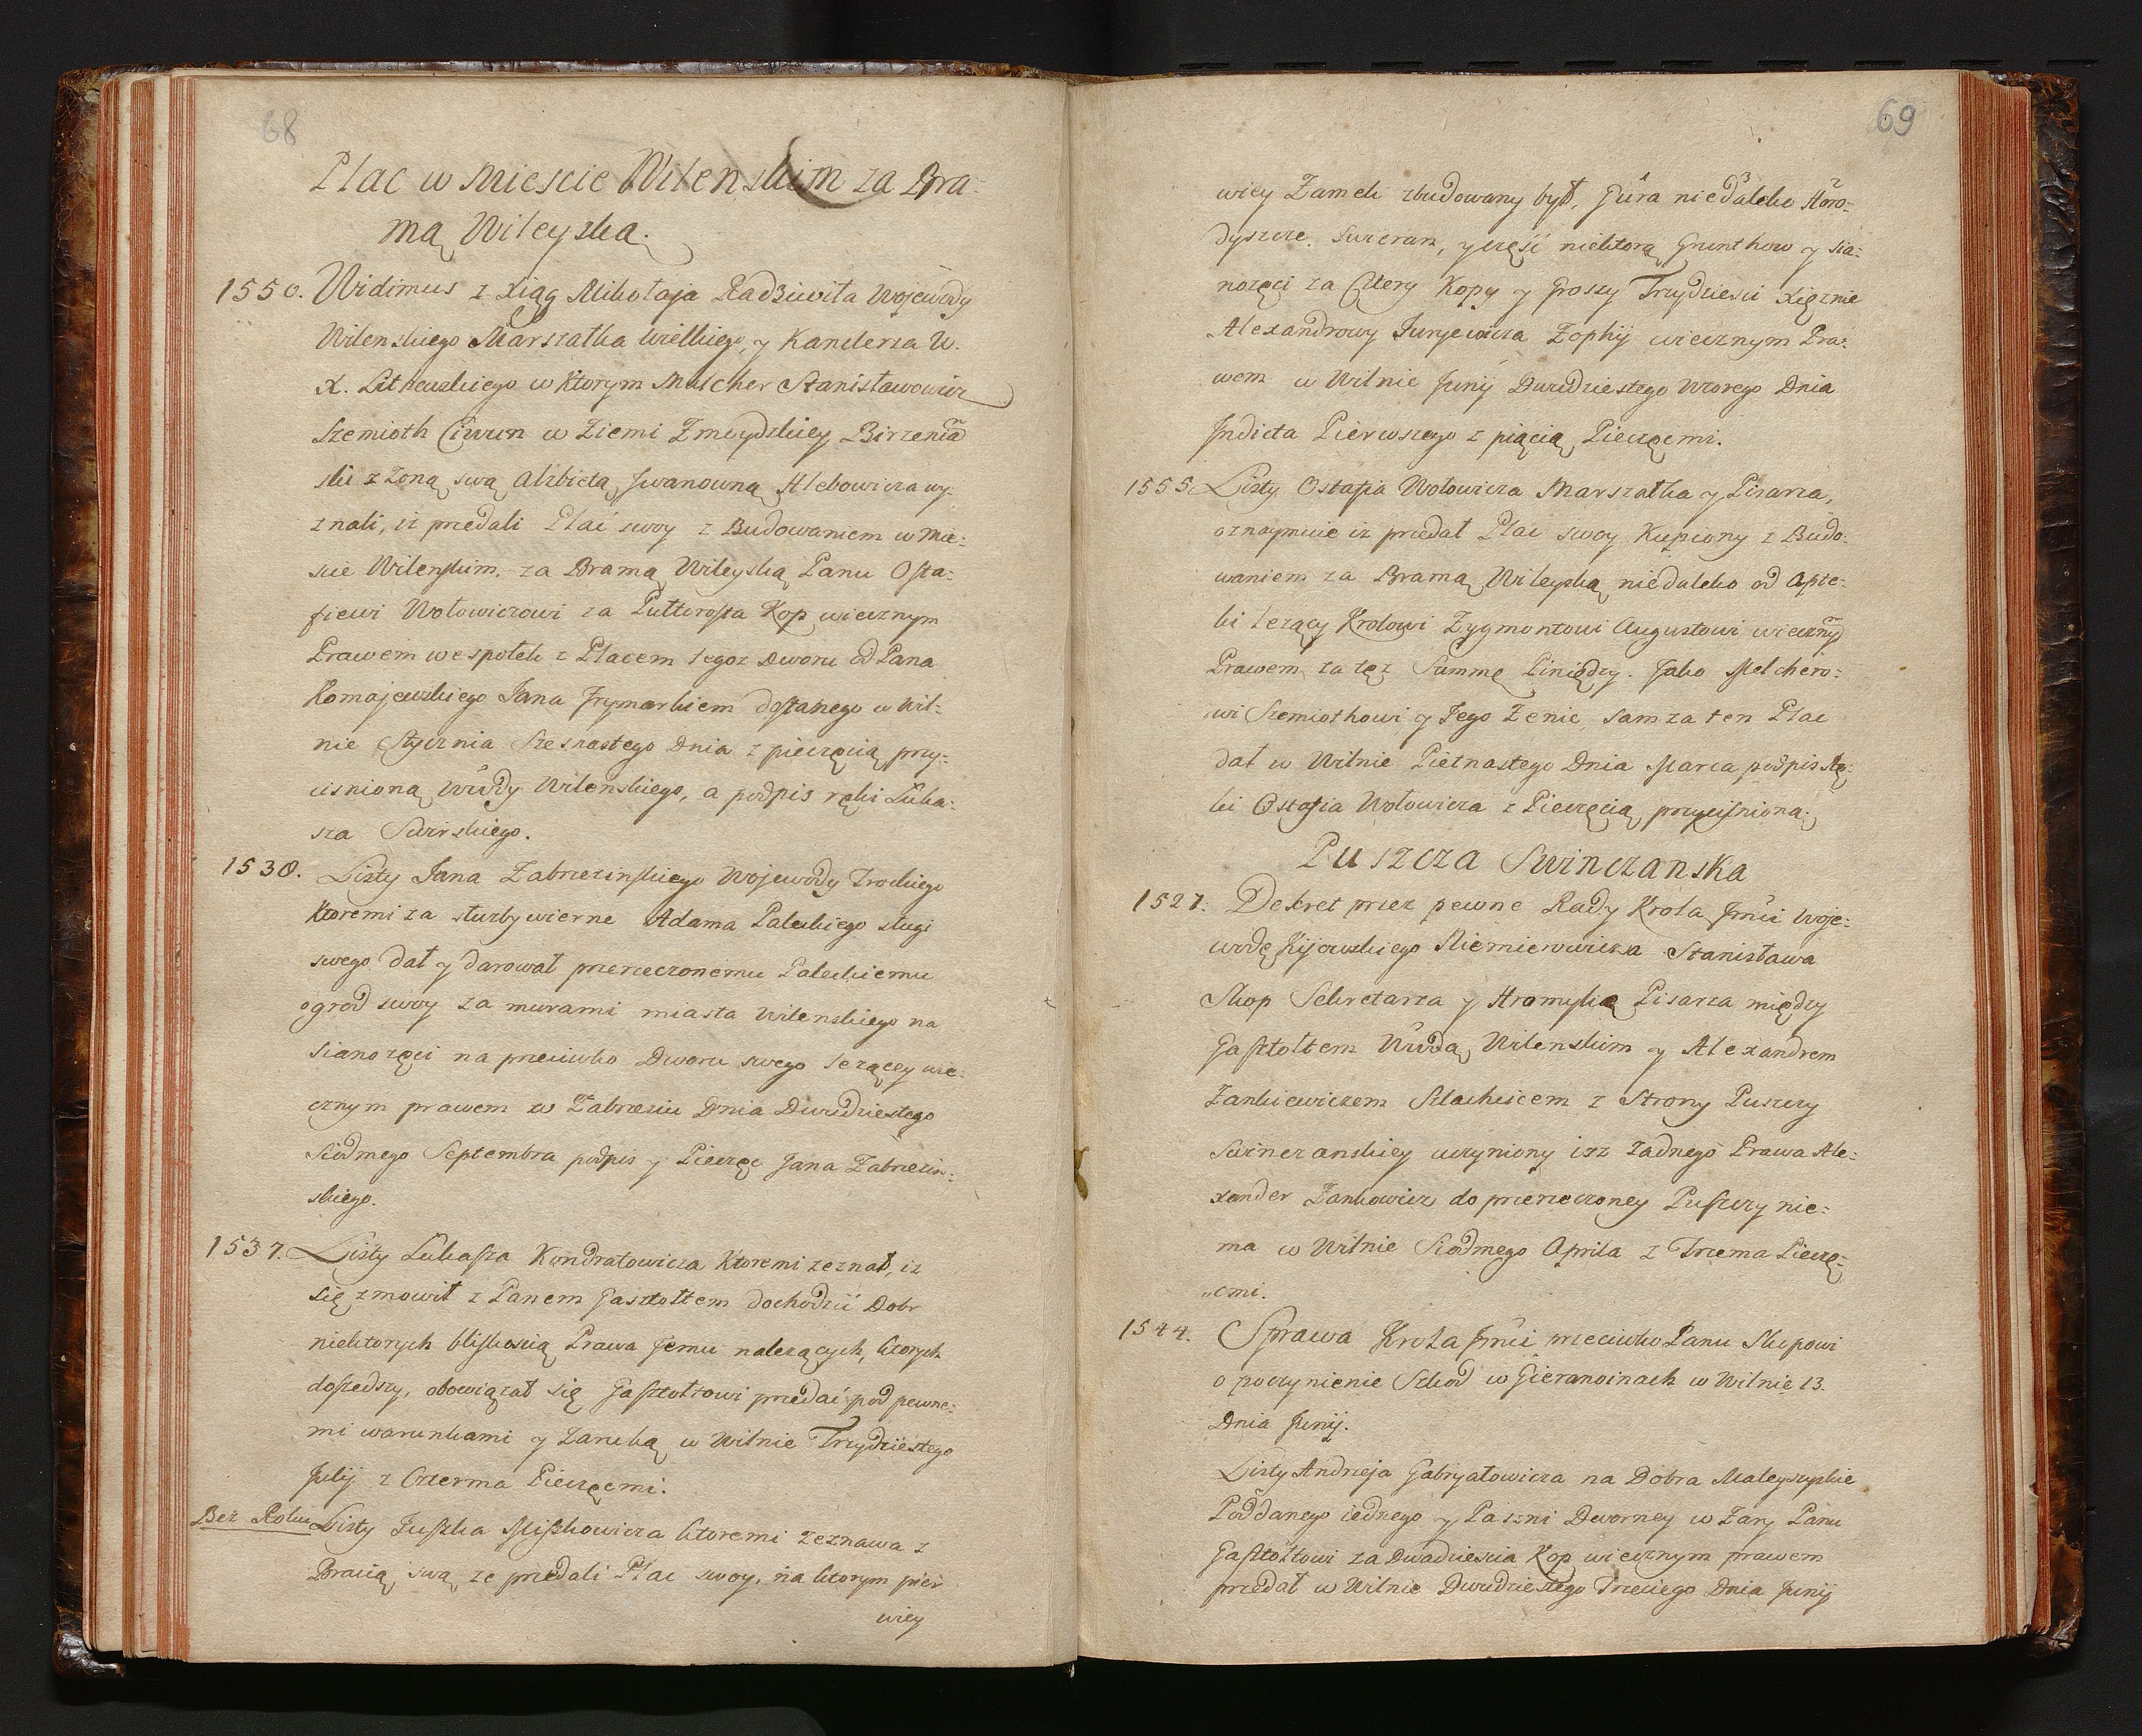 68
Plac w Miescie Wilenskim za Bra-
mą Wileyską.
1550. Widimus z Xiąg Mikołaja Radziwiła Wojewody
Wilenskiego Marszałka Wielkiego, y Kanclerza W.
X. Lithewskiego w Ktorym Melcher Stanisławowicz
Szemioth Ciwun w Ziemi Zmuydzkiey Birzenian̄
ski z Zoną swą Alzbietą Jwanowną Hlebowicza wy-
znali, iz przedali Plac swoy z Budowaniem w Mie-
scie Wilenskim, za Bramą Wileyską Panu Osta-
fiewi Wołowiczowi za Puttorosta Kop wiecznym
Prawem wespołek z Placem tegoz Dworu od Pana
Komajewskiego Jana frymarkiem dostanego w Wil-
nie Stycznia Szesnastego Dnia z pieczęcią przy-
cisnioną Wwdy Wilenskiego, a podpis ręki Luka-
sza Swirskiego.
1538. Listy Jana Zabrzezinskiego Wojewody Trockiego
Ktoremi za służby wierne Adama Paleckiego sługi
swego dał y darował przerzeczonemu Paleckiemu
ogrod swoy za murami miasta Wilenskiego na
sianozęci na przeciwko Dworu swego lezącey wie-
cznym prawem w Zabrzeziu Dnia Dwudziestego
Siodmego Septembra podpis y Pieczęc Jana Zabrzezin-
skiego.
1537. Listy Lukasza Kondratowicza Ktoremi zeznał, iz
się zmowił z Panem Gasztołtem dochodzić Dobr
niektorych bliskoscią Prawa Jemu nalezących, ktorych
doszedszy, obowiązał się Gasztołtowi przedać pod pewne-
mi warunkami y Zaruką w Wilnie Trzydziestego
Julij z Czterma Pieczęcmi.
Bez Roku Listy Juszka Miszkowicza ktoremi zeznawa z
Bracią swą ze przedali Plac swoy, na ktorym pier
wiey
69
wiey Zamek zbudowany był, Gura niedaleko Horo-
dyszcze Swieran, y część niektorą Grunthow y sia-
nozęci za Cztery Kopy y Groszy Trzydziesci Xięznie
Alexandrowy Juryewicza Zophij wiecznym Pra-
wem w Wilnie Junij Dwudziestego Wtorego Dnia
Indicta Pierwszego z pięcią Pieczęcmi.
1555. Listy Ostafia Wołowicza Marszałka y Pisarza,
oznaymuie iz przedał Plac swoy Kupiony z Budo-
waniem za Bramą Wileyską niedaleko od Apte-
ki lezący Krolowi Zygmontowi Augustowi wieczny̅
Prawem, za tęz Summę Piniędzy. Jako Melchero-
wi Szemiothowi y Jego Zenie, sam za ten Plac
dał w Wilnie Pietnastego Dnia Marca podpis Rę-
ki Ostafia Wołowicza z Pieczęcią przycisnioną.
Puszcza Swinczanska
1527. Dekret przez pewne Rady Krola Jmci Woje-
wodę Kijowskiego Niemierowicza Stanisława
Skop Sekretarza y Hromykę Pisarza między
Gasztołtem Wwdą Wilenskim y Alexandrem
Zankiewiczem Szlachcicem z Strony Puszczy
Swinczanskiey uczyniony isz zadnego Prawa Ale-
xander Zankowicz do przerzeczoney Puszczy nie-
ma w Wilnie Siodmego Aprila z Trzema Pieczę-
„cmi.
1544. Sprawa Krola Jmci przeciwko Panu Skopowi
o poczynienie Szkod w Gieranoinach w Wilnie 13.
Dnia Junij.
Listy Andrzeja Gabryałowicza na Dobra Maleyszyskie
Poddanego iednego y Paszni Dworney w Zary Panu
Gasztołtowi za Dwadziescia Kop wiecznym prawem
przedał w Wilnie Dwudziestego Trzeciego Dnia Junij